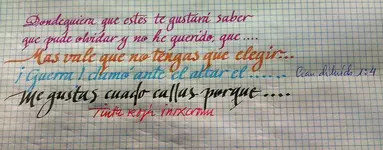 Dondequiera que estés te gustará saber
que pude olvidar y no he querido, que ....
Mas vale que no tengas que elegir...
¡Guerra! clamo ante el altar el ......
me gustas cuado callas porque ....
Tinta